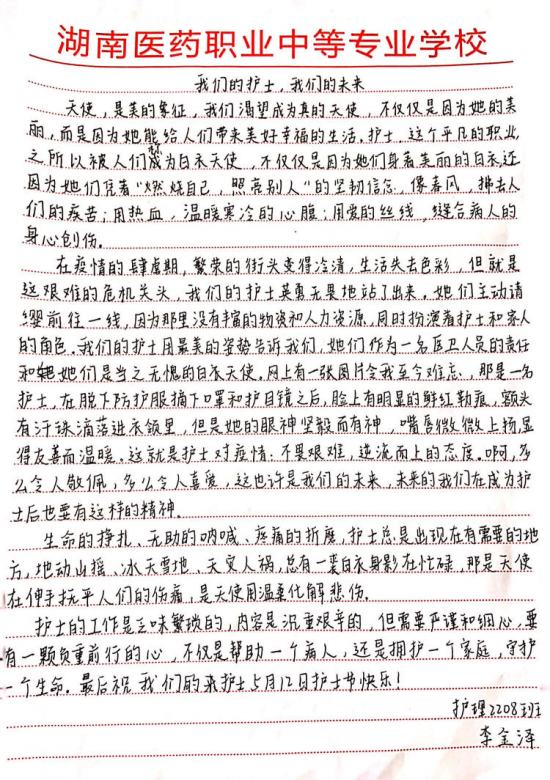 湖南医药职业中等专业学校
我们的护士,我们的未来
天使,是美的象征,我们渴望成为真的天使,不仅仅是因为她的美
丽,而是因为她能给人们带来美好幸福的生活。护士,这个平凡的职业
之所以被人们称为白衣天使,不仅仅是因为她们身着美丽的白衣还
因为她们凭着“燃烧自己,照亮别人”的坚韧信念,像春风,拂去人
们的疾苦;用热血,温暖寒冷的心腹;用爱的丝线,缝合病人的
身心创伤。
在疫情的肆虐期,繁荣的街头变得冷清,生活失去色彩,但就是
这艰难的危机关头,我们的护士英勇无畏地站了出来,她们主动请
缨前往一线,因为那里没有丰富的物资和人力资源,同时扮演着护士和家人
的角色。我们的护士用最美的姿势告诉我们,她们作为一名医卫人员的责任
和她们是当之无愧的白衣天使。网上有一张图片令我至今难忘,那是一名
护士,在脱下防护服摘下口罩和护目镜之后,脸上有明显的鲜红勒痕,额头
有汗珠滴落进衣领里,但是她的眼神坚毅而有神,嘴唇微微上扬显
得友善而温暖。这就是护士对疫情:不畏艰难,逆流而上的态度。啊,多
么令人敬佩,多么令人喜爱,这也许是我们的未来,未来的我们在成为护
士后也要有这样的精神。
生命的挣扎、无助的呐喊、疼痛的折磨,护士总是出现在有需要的地
方,地动山摇、冰天雪地、天灾人祸,总有一袭白衣身影在忙碌,那是天使
在伸手抚平人们的伤痛,是天使用温柔化解悲伤。
护士的工作是乏味繁琐的,内容是沉重艰辛的,但需要严谨和细心,要
有一颗负重前行的心,不仅是帮助一个病人,还是拥护一个家庭,守护
一个生命。最后祝我们的未来护士5月12日护士节快乐!
护理2208班
李金泽